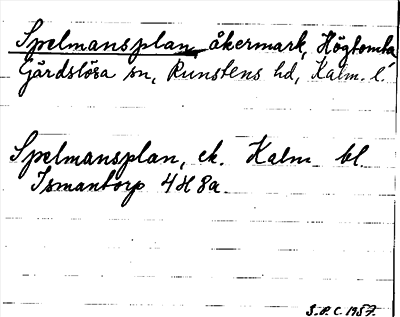 Spelmansplan, åkermark, Högtomta,
Gårdslösa sn, Runstens hd, Kalm. l.
Spelmansplan, ek. Kalm bl
Ismantorp 4H8a.
S.P.C. 1957.